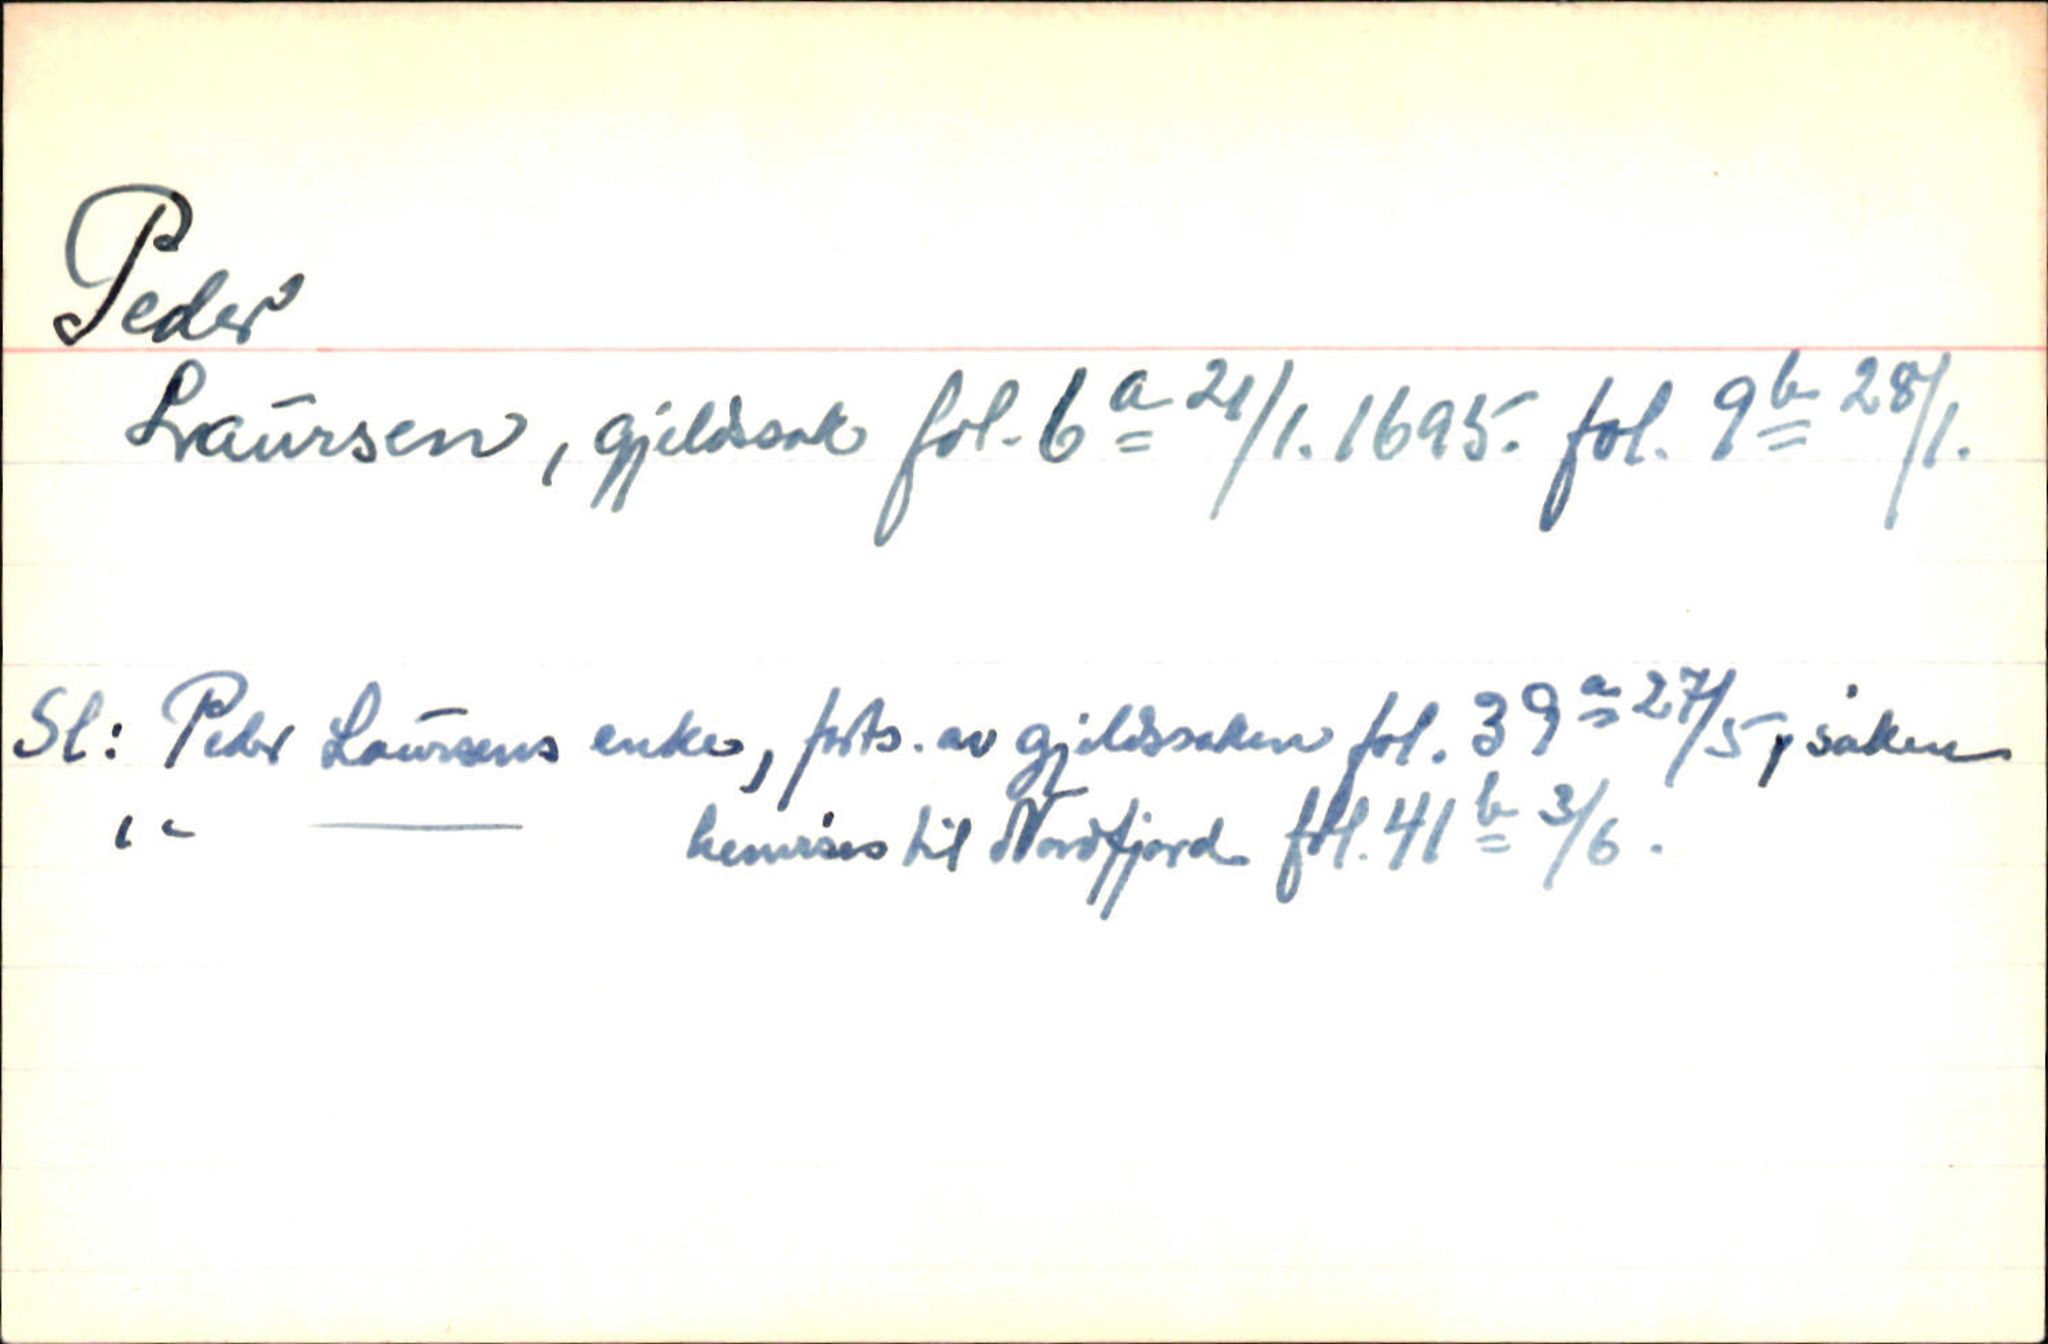 Peder
Laursen, gjeldssak fol. 6a 21/1. 1695. fol. 9b 28/1.
Sl: Peder Laursens enke, forts. av gjeldssaken fol. 39a 27/5, saken
" — henvises til Nordfjord fol. 41b 3/6.